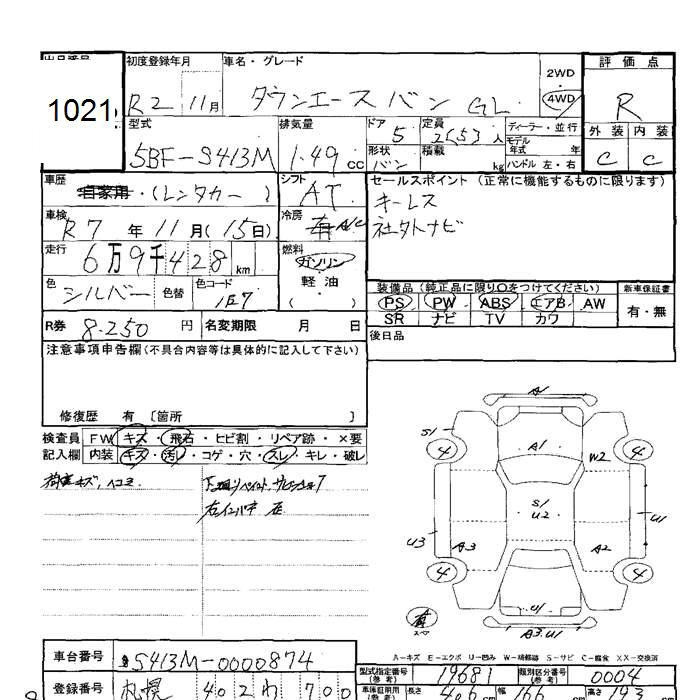 出品番号
1021
初度登録年月 車名・グレード
R2 11月 タウンエースバン GL
2WD
4WD
評価点
R
外装 内装
C C
型式 排気量 ドア 定員 ディーラー・並行
5BF-S413M 1.49 cc 5 2(5)3人
形状 積載 モデル年式 年
バン kg ハンドル 左・右
車歴 自家用・(レンタカー) シフト AT
セールスポイント(正常に機能するものに限ります)
キーレス
社外ナビ
車検 R7年11月(15日) 冷房 A/C
走行 6万9千428km 燃料 ガソリン
軽油
( )
色 シルバー 色替 色コード 1E7
装備品(純正品に限り○をつけてください) 新車保証書
PS PW ABS エアB AW 有・無
SR ナビ TV カワ
R券 8.250円 名変期限 月 日
後日品
注意事項申告欄(不具合内容等は具体的に記入して下さい)
修復歴 有 [箇所 ]
検査員 FW キズ・飛石・ヒビ割・リペア跡・×要
記入欄 内装 キズ・汚レ・コゲ・穴・スレ・キレ・破レ
キズ、ヘコミ
A1
S1
4 4
A1
W2
S1
U2
U3 A3 A2 U1
4 4
U1
A3.U1
A-キズ E-エクボ U-凹み W-補修跡 S-サビ C-腐食 XX-交換済
車台番号 S413M-0000874
型式指定番号(参考) 19681 類別区分番号(参考) 0004
登録番号 札幌 402 わ 700
車庫証明用(参考) 長さ 406 cm 幅 166 cm 高さ 193 cm